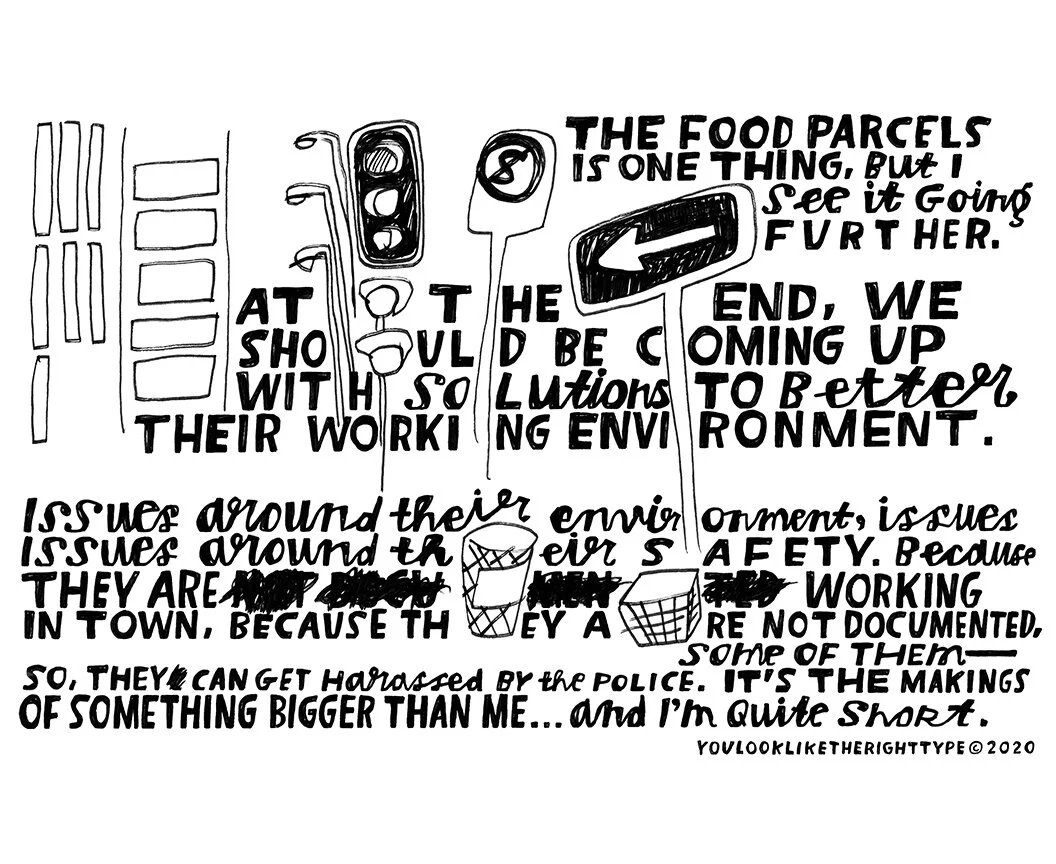 THE FOOD PARCELS
IS ONE THING, But I
See it Going
FURTHER.
S
AT THE END, WE
SHOULD BE COMING UP
WITH SOLutions TO Better
THEIR WORKING ENVIRONMENT.
Issues around their environment, issues
Issues around their SAFETY. Because
THEY ARE WORKING
IN TOWN, BECAUSE THEY ARE NOT DOCUMENTED,
SOME OF THEM—
SO, THEY CAN GET HARassed BY the POLICE. IT'S THE MAKINGS
OF SOMETHING BIGGER THAN ME... and I'm Quite ShoRt.
YOULOOKLIKETHERIGHTTYPE©2020